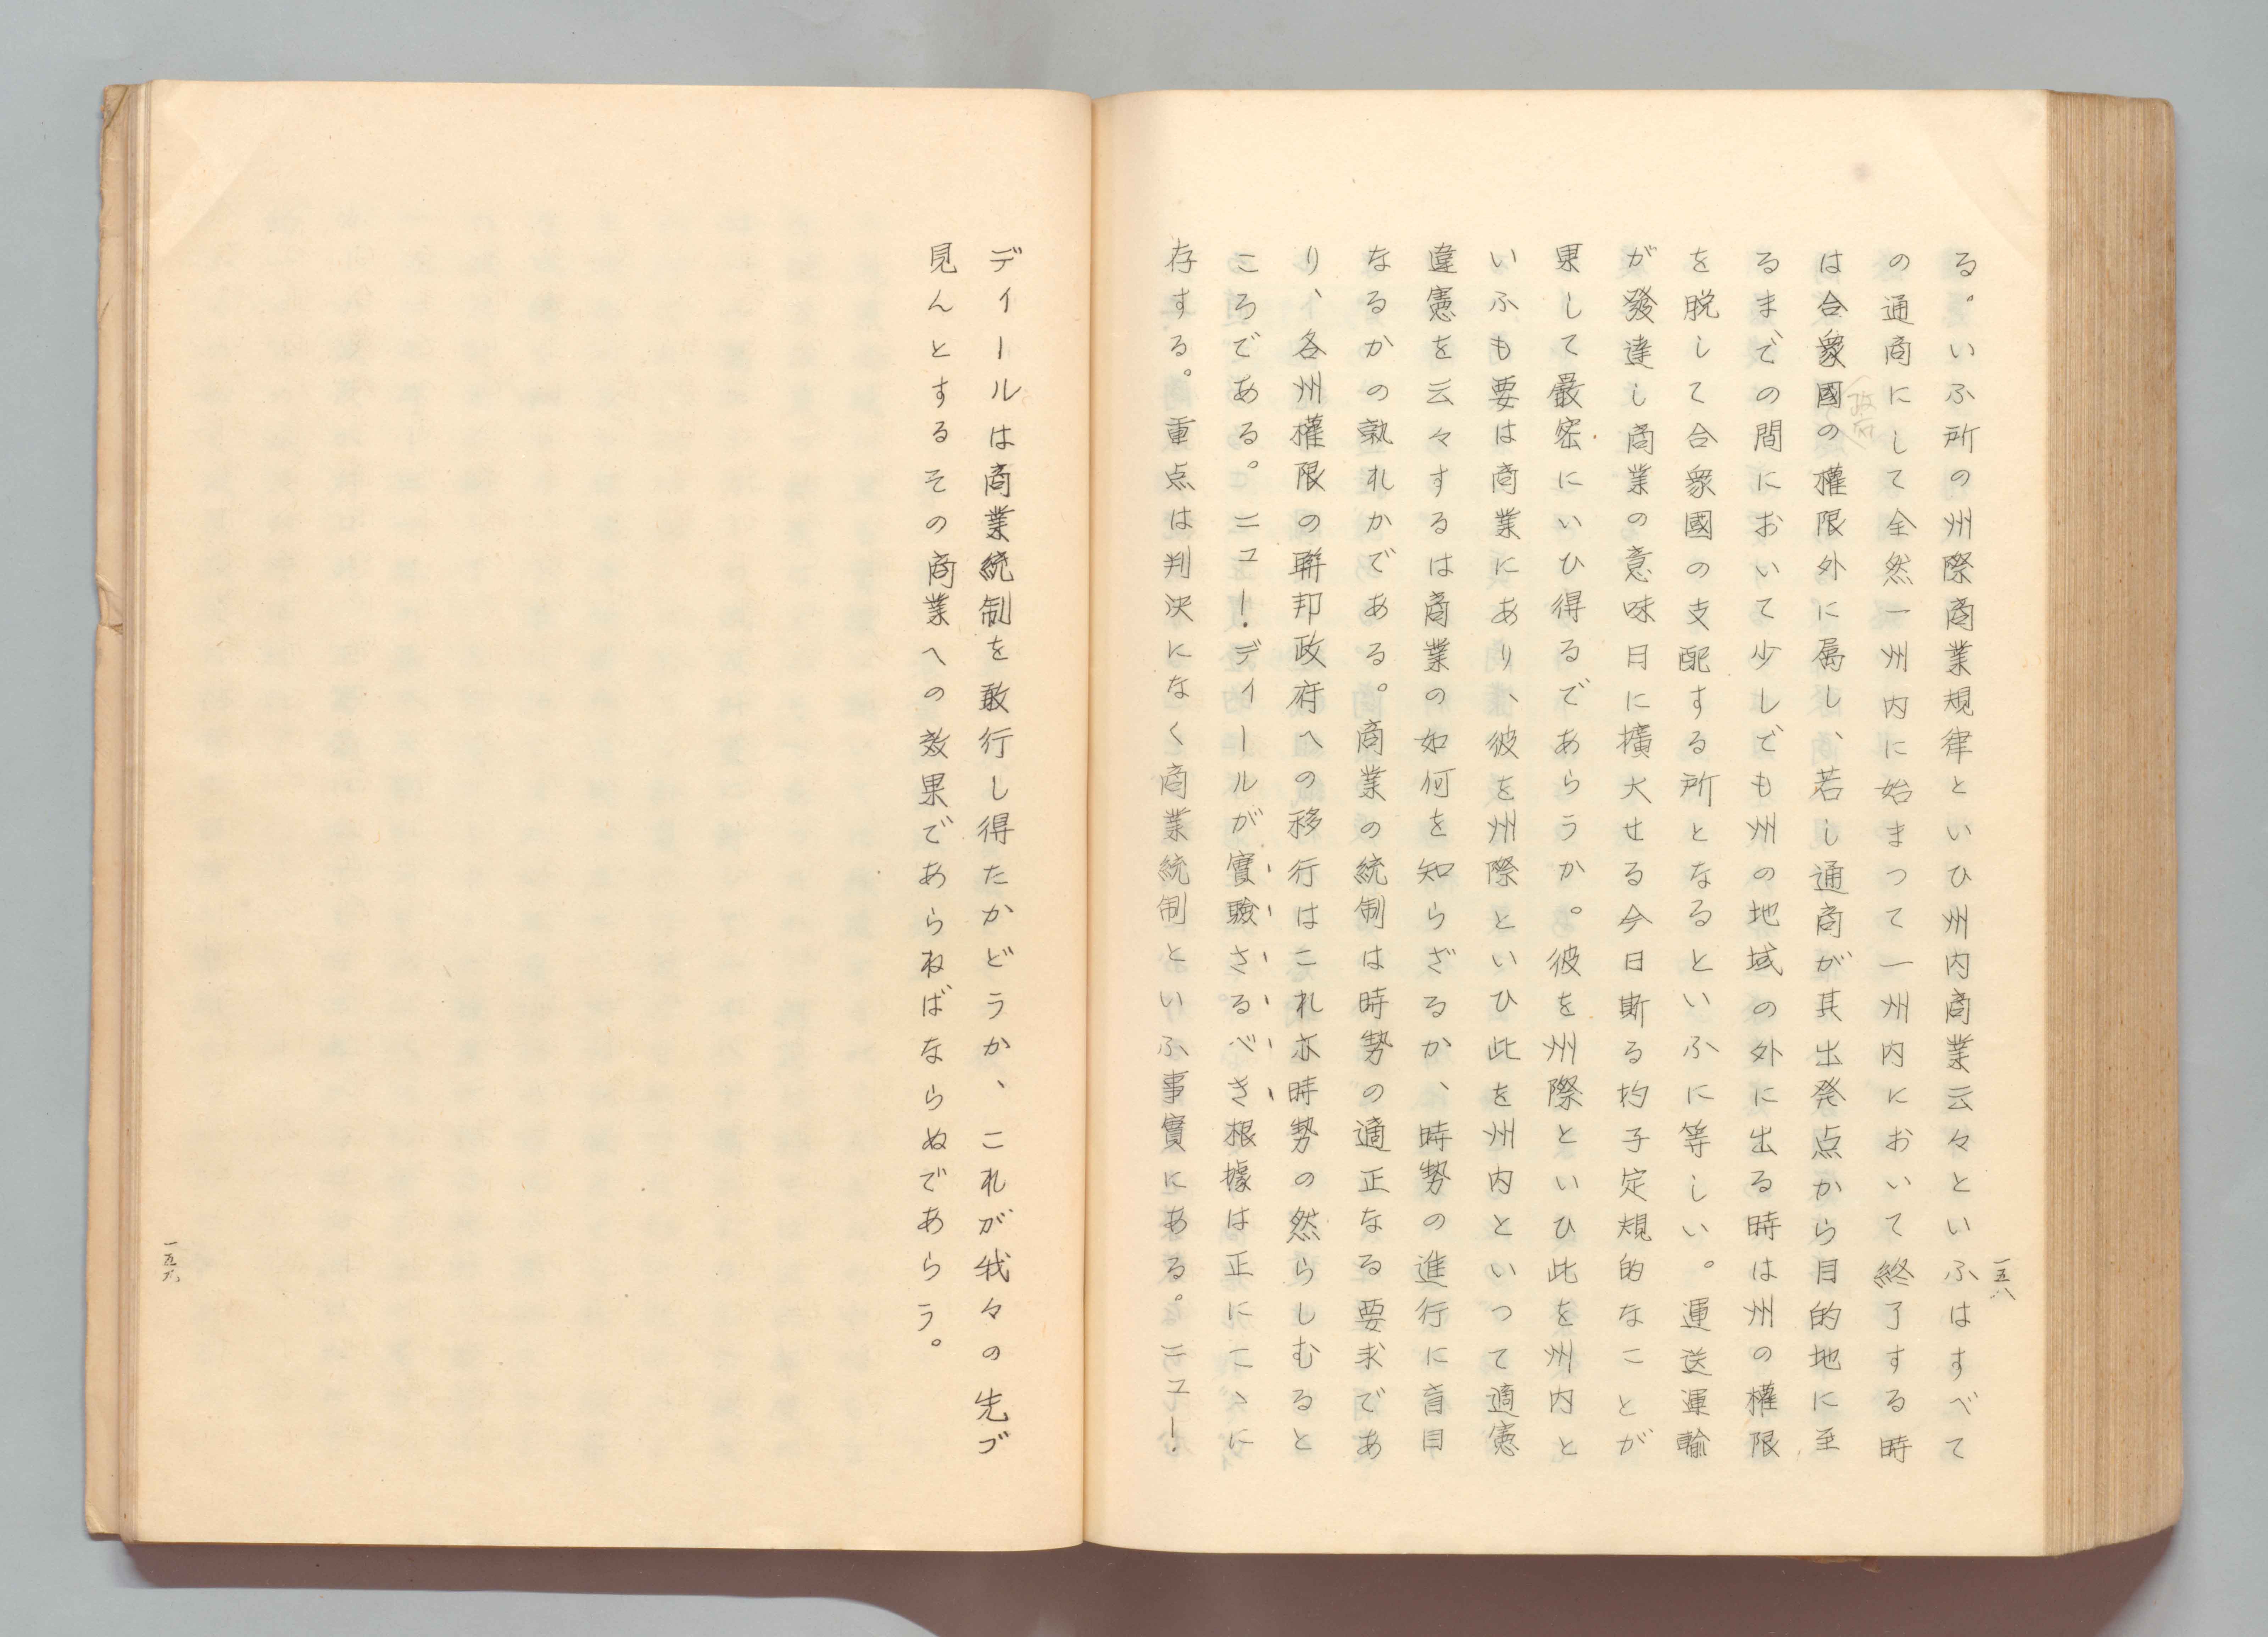 一五八
る。いふ所の州際商業規律といひ州内商業云々といふはすべて
の通商にして全然一州内に始まつて一州内において終了する時
は合衆國の權限外に屬し、若し通商が其出発点から目的地に至
るまでの間において少しでも州の地域の外に出る時は州の權限
を脱して合衆國の支配する所となるといふに等しい。運送運輸
が發達し商業の意味日に擴大せる今日斯る杓子定規的なことが
果して嚴密にいひ得るであらうか。彼を州際といひ此を州内と
いふも要は商業にあり、彼を州際といひ此を州内といつて適憲
違憲を云々するは商業の如何を知らざるか、時勢の進行に盲目
なるかの孰れかである。商業の統制は時勢の適正なる要求であ
り、各州權限の聯邦政府への移行はこれ亦時勢の然らしむると
ころである。ニュー・ディールが實驗さるべき根據は正にこゝに
存する。重点は判決になく商業統制といふ事實にある。ニュー
ディールは商業統制を敢行し得たかどうか、これが我々の先づ
見んとするその商業への效果であらねばならぬであらう。